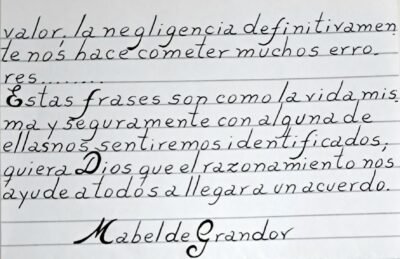 valor, la negligencia definitivamen-
te nos hace cometer muchos erro-
res.........
Estas frases son como la vida mis-
ma y seguramente con alguna de
ellas nos sentiremos identificados,
quiera Dios que el razonamiento nos
ayude a todos a llegar a un acuerdo.
Mabel de Grandor